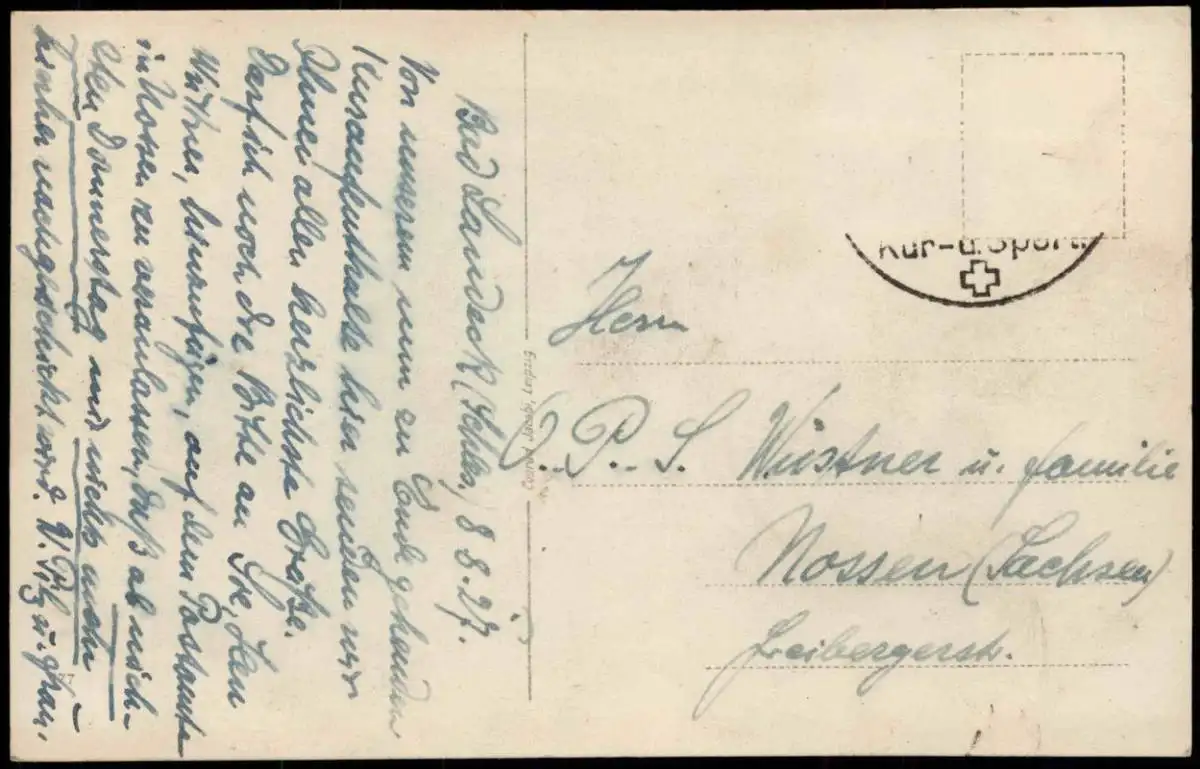 Bad Landeck (Schles.) 8.8.27.
Von unserem nun zu Ende gehenden
Kuraufenthalte hier senden wir
Ihnen allen herzlichste Grüße.
Darf ich noch die Bitte an Sie, Herr
Wüstner, hinzufügen, auf dem Postamte
in Nossen zu veranlassen, daß ab näch-
sten Donnerstag uns nichts mehr
hierher nachgeschickt wird. V. Pfz u. Frau.
Kur- u. Sport
Herrn
O. P. S. Wüstner u. Familie
Nossen (Sachsen)
Freibergerstr.